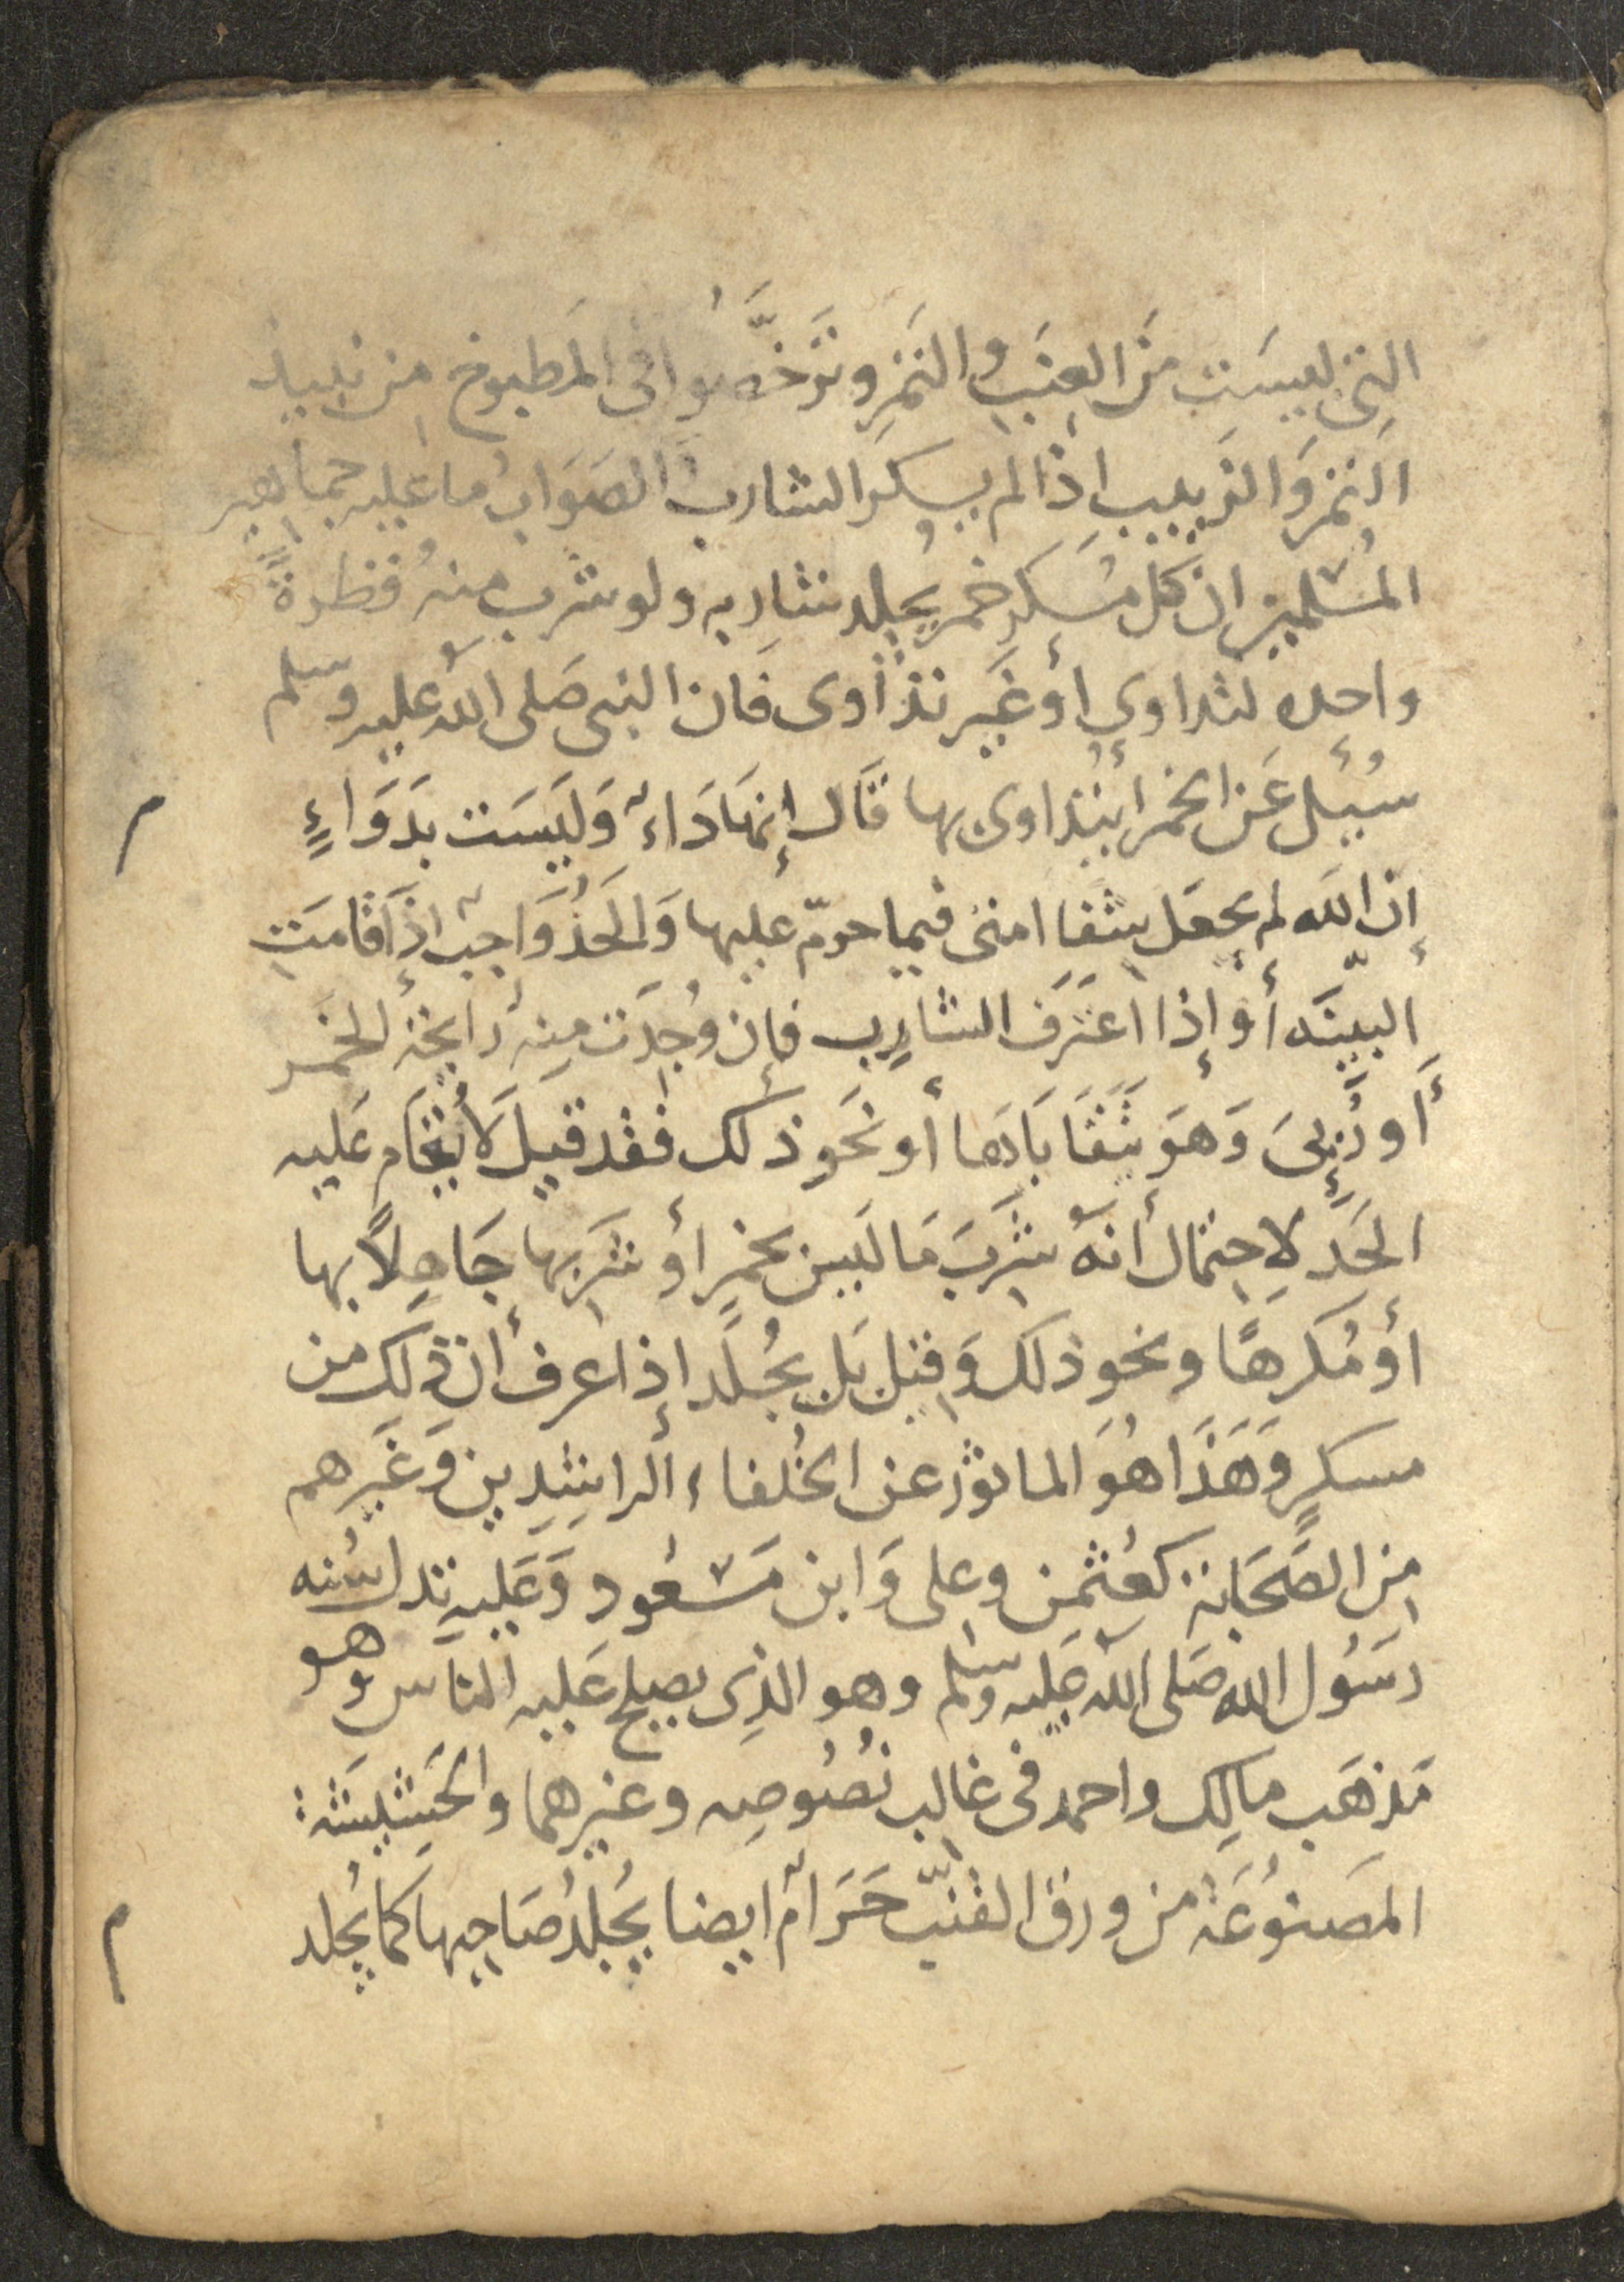 التِي ليسَت مَن العِنَبِ والتَمرِ وتَرَخَّصُوا في المَطبوخ من نبيذ
التمرِ وَالزبيبِ اذا لم يسكر الشارب الصَوَابُ ما عليه جماهير
المُسْلمين ان كل مُسَكرٍ خمر يُجلد شارِبه ولو شرب منهُ قطرةً
واحده لتداوي أو غَيرِ تدَاوى فَان النبى صَلى اللهُ عليه وسلم
سُئِل عَن الخمر أيُتداوى بها فقَال إِنهَا دَاءٌ وَلَيسَت بدَوَاءٍ
إن الله لم يجعَل شفا امتى فيما حرّم عليها وَالحَدُّ وَاجبٌ إذَا قامَت
البيّنَه أو إذا اعتَرَف الشارِب فإن وُجِدَت مِنه رَايحَة الخَمر
أَو رُئِيَ وَهوَ يَتَقَايَاهَا أو نَحوِ ذلك فقد قيل لَا يُقَام عَليه
الحَدّ لاحِتمال أنهُ شَرِبَ مَا لَيس بخمرٍ أو شَرِبها جَاهِلًا بها
أو مُكرهًا ونحو ذلك وَقيل بَل يُجلَد إذا عرف أن ذلك من
مسكرٍ وَهَذَا هُوَ الماثور عن الخُلفاء الراشِدِين وَغَيرهم
مِن الصَّحَابَة كعُثمن وعلى وَابن مَسْعُود وَعَليهِ تدل سُنه
رسَوُل الله صَلى الله عَليه وسلم وهو الذِى يصلح عَليه الناس وهو
مَذهَب مالِك واحمد في غالب نُصُوصِه وغيرهما والحَشيشَة
المَصنوُعَة من ورق القنّب حَرَامٌ ايضا يُجلَدُ صَاحِبها كما يُجلد